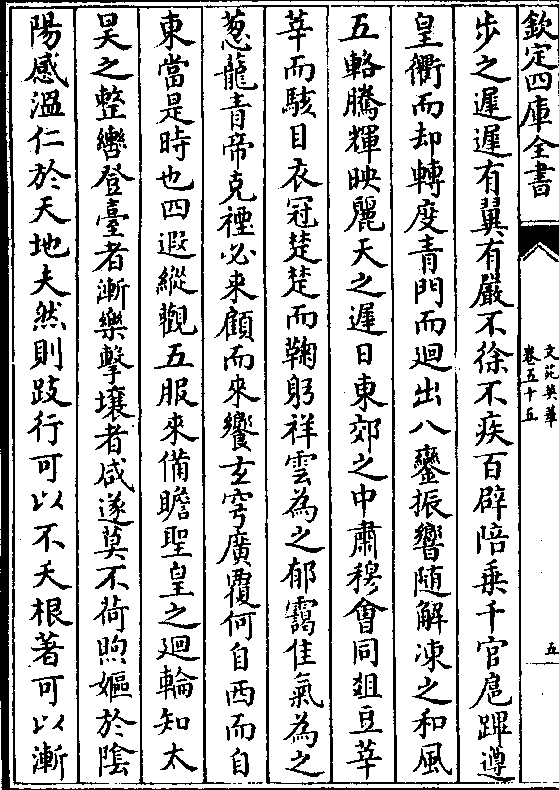 欽定四庫全書
文苑英華
卷五十五
五
步之遲遲有翼有嚴不徐不疾百辟陪乗千官扈蹕遵
皇衢而却轉度青門而迴出八鑾振響随解凍之和風
五輅騰輝映麗天之遲日東郊之中肅穆會同爼豆莘
莘而駭目衣冠楚楚而鞠躬祥雲為之郁靄佳氣為之
葱蘢青帝克禋必來顧而來饗玄穹廣覆何自西而自
東當是時也四遐縱觀五服來備瞻聖皇之迴輪知太
昊之整轡登臺者漸樂擊壤者咸遂莫不荷煦嫗於隂
陽感溫仁於天地夫然則跂行可以不夭根著可以漸